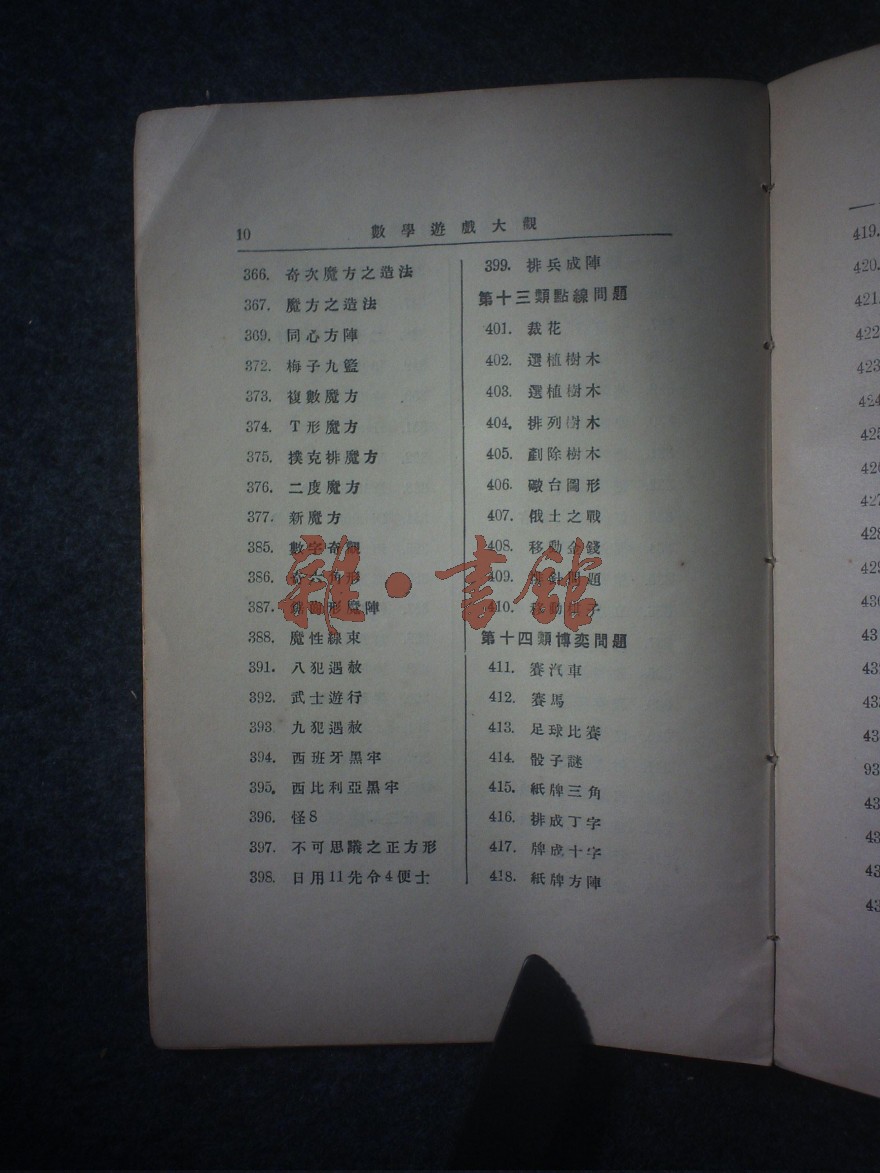 10 數學遊戲大觀
366. 奇次魔方之造法
367. 魔方之造法
369. 同心方陣
372. 梅子九籃
373. 複數魔方
374. T形魔方
375. 撲克排魔方
376. 二度魔方
377. 新魔方
385. 數字奇觀
386. 奇六角形
387. 形魔陣
388. 魔性線束
391. 八犯遇赦
392. 武士遊行
393. 九犯遇赦
394. 西班牙黑牢
395. 西比利亞黑牢
396. 怪8
397. 不可思議之正方形
398. 日用11先令4便士
399. 排兵成陣
第十三類點線問題
401. 栽花
402. 選植樹木
403. 選植樹木
404. 排列樹木
405. 剷除樹木
406. 礮台圖形
407. 俄土之戰
408. 移動金錢
409. 問題
410. 移動子
第十四類博奕問題
411. 賽汽車
412. 賽馬
413. 足球比賽
414. 骰子謎
415. 紙牌三角
416. 排成丁字
417. 牌成十字
418. 紙牌方陣
雜·書館
419.
420.
421.
422
423
424
425
426
427
428
429
430
431
432
433
43
93
43
43
43
43